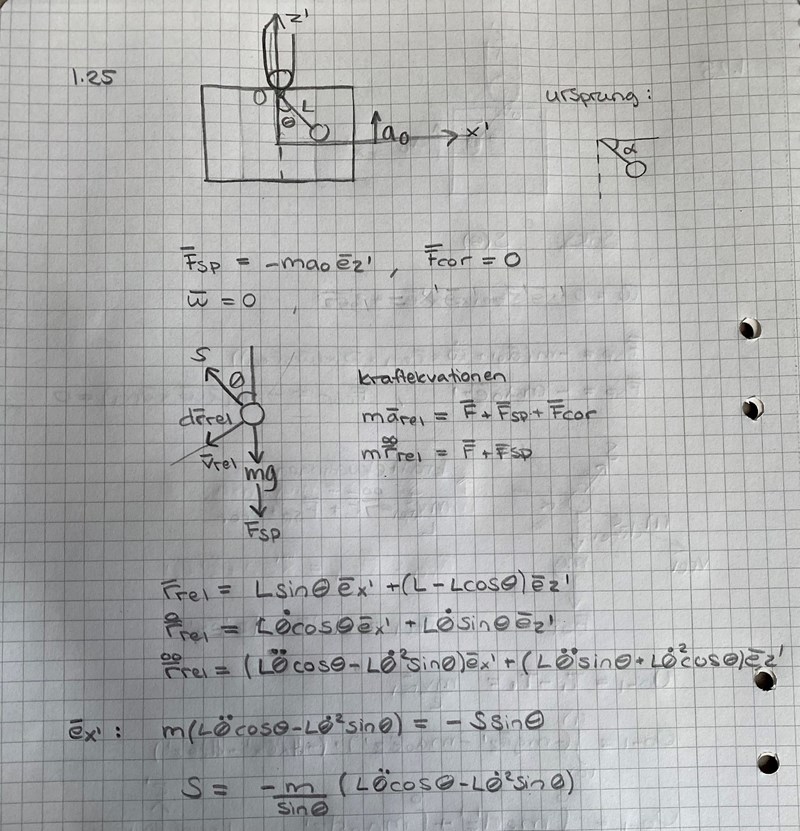 z'
1.25
O L
θ
a₀ x'
ursprung:
α
F̄sp = -ma₀ēz' , F̄cor = 0
w̄ = 0 ,
S
θ
kraftekvationen
dr̄rel
mārel = F̄ + F̄sp + F̄cor
v̄rel
m r̊̊rel = F̄ + F̄sp
mg
Fsp
r̄rel = Lsinθ ēx' + (L - Lcosθ) ēz'
r̊rel = Lθ̇cosθ ēx' + Lθ̇sinθ ēz'
r̊̊rel = (Lθ̈cosθ - Lθ̇²sinθ)ēx' + (Lθ̈sinθ + Lθ̇²cosθ)ēz'
ēx' : m(Lθ̈cosθ - Lθ̇²sinθ) = - Ssinθ
S = -m/sinθ (Lθ̈cosθ - Lθ̇²sinθ)